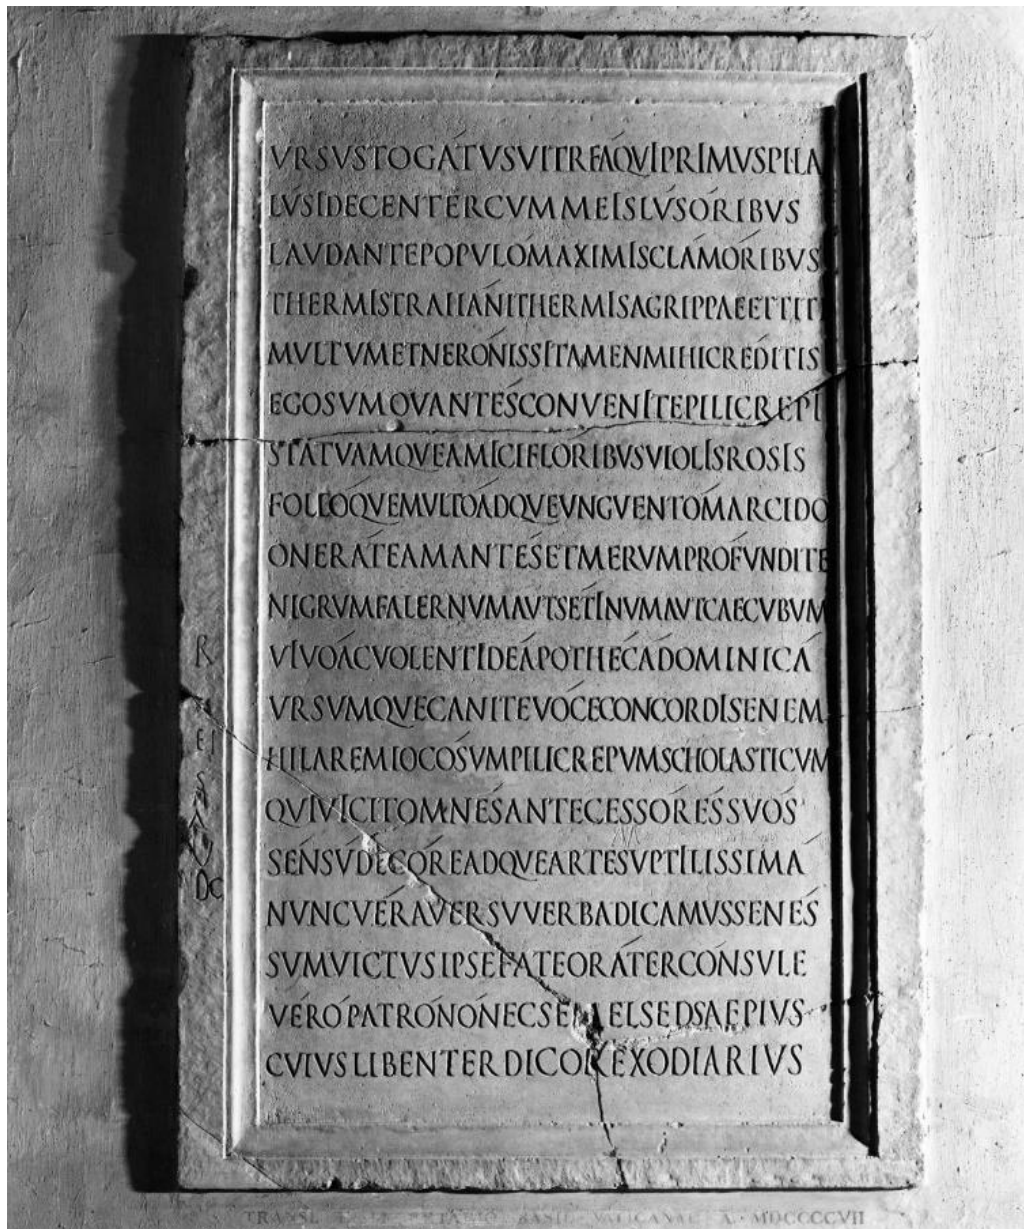 VRSVSTOGÁTVSVITREÁQVIPRIMVSPILA
LVSIDECENTERCVMMEISLVSÓRIBVS
LAVDANTEPOPVLÓMAXIMISCLÁMÓRIBVS
THERMISTRAIÁNITHERMISAGRIPPAEETTIT
MVLTVMETNERÓNISSITAMENMIHICRÉDITIS
EGOSVMOVANTÉSCONVENITEPILICREPI
STATVAMQVEAMÍCIFLORIBVSVIOLISROSIS
FOLIÓQVEMVLTÓÁDQVEVNGVENTÓMARCIDO
ONERÁTEAMANTÉSETMERVMPRÓFVNDITE
NIGRVMFALERNVMAVTSÉTINVMAVTCAECVBVM
VIVÓÁCVOLENTIDEÁPOTHÉCÁDOMINICÁ
VRSVMQVECANITEVÓCECONCORDISENEM
HILAREMIOCÓSVMPILICREPVMSCHOLASTICVM
QVIVICITOMNÉSANTECESSÓRÉSSVÓS
SÉNSVDECÓREADQVEARTESVPTILISSIMÁ
NVNCVÉRÁVERSVVERBADICAMVSSENÉS
SVMVICTVSIPSEFATEORÁTERCÓNSVLE
VÉRÓPATRÓNÓNECSEMELSEDSAEPIVS
CVIVSLIBENTERDICOREXODIARIVS
TRANSL
BASIL VATICANAE A · MDCCCCVII